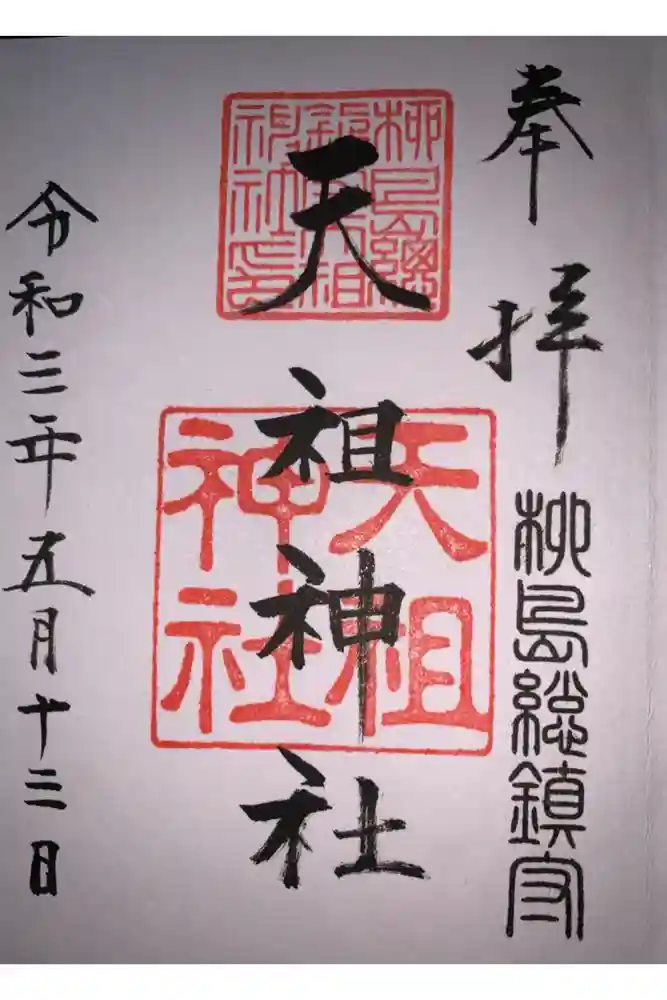 奉拝
柳島総鎮守
天祖神社
柳島總鎮守天祖神社印
天祖神社
令和三年五月十三日